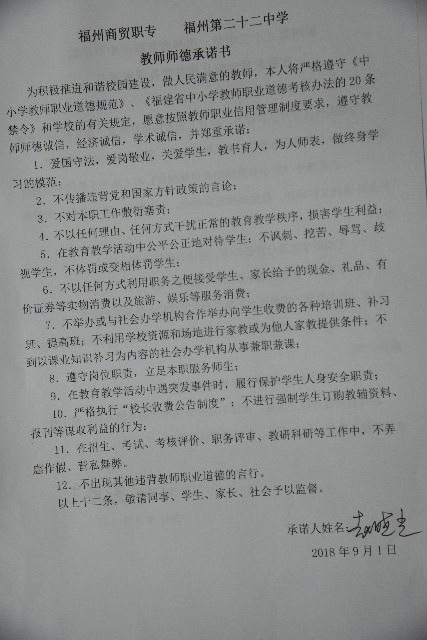 福州商贸职专 福州第二十二中学
教师师德承诺书
为积极推进和谐校园建设，做人民满意的教师，本人将严格遵守《中
小学教师职业道德规范》、《福建省中小学教师职业道德考核办法的20条
禁令》和学校的有关规定，愿意按照教师职业信用管理制度要求，遵守教
师师德诚信，经济诚信，学术诚信，并郑重承诺：
1．爱国守法，爱岗敬业，关爱学生，教书育人，为人师表，做终身学
习的模范；
2．不传播违背党和国家方针政策的言论；
3．不对本职工作敷衍塞责；
4．不以任何理由、任何方式干扰正常的教育教学秩序，损害学生利益；
5．在教育教学活动中公平公正地对待学生；不讽刺、挖苦、辱骂、歧
视学生，不体罚或变相体罚学生；
6．不以任何方式利用职务之便接受学生、家长给予的现金、礼品、有
价证券等实物消费以及旅游、娱乐等服务消费；
7．不举办或与社会办学机构合作举办向学生收费的各种培训班、补习
班、提高班；不利用学校资源和场地进行家教或为他人家教提供条件；不
到以课业知识补习为内容的社会办学机构从事兼职兼课；
8．遵守岗位职责，立足本职服务师生；
9．在教育教学活动中遇突发事件时，履行保护学生人身安全职责；
10．严格执行“校长收费公告制度”；不进行强制学生订购教辅资料、
报刊等谋收利益的行为；
11．在招生、考试、考核评价、职务评审、教研科研等工作中，不弄
虚作假、营私舞弊。
12．不出现其他违背教师职业道德的言行。
以上十二条，敬请同事、学生、家长、社会予以监督。
承诺人姓名：
2018年9月1日